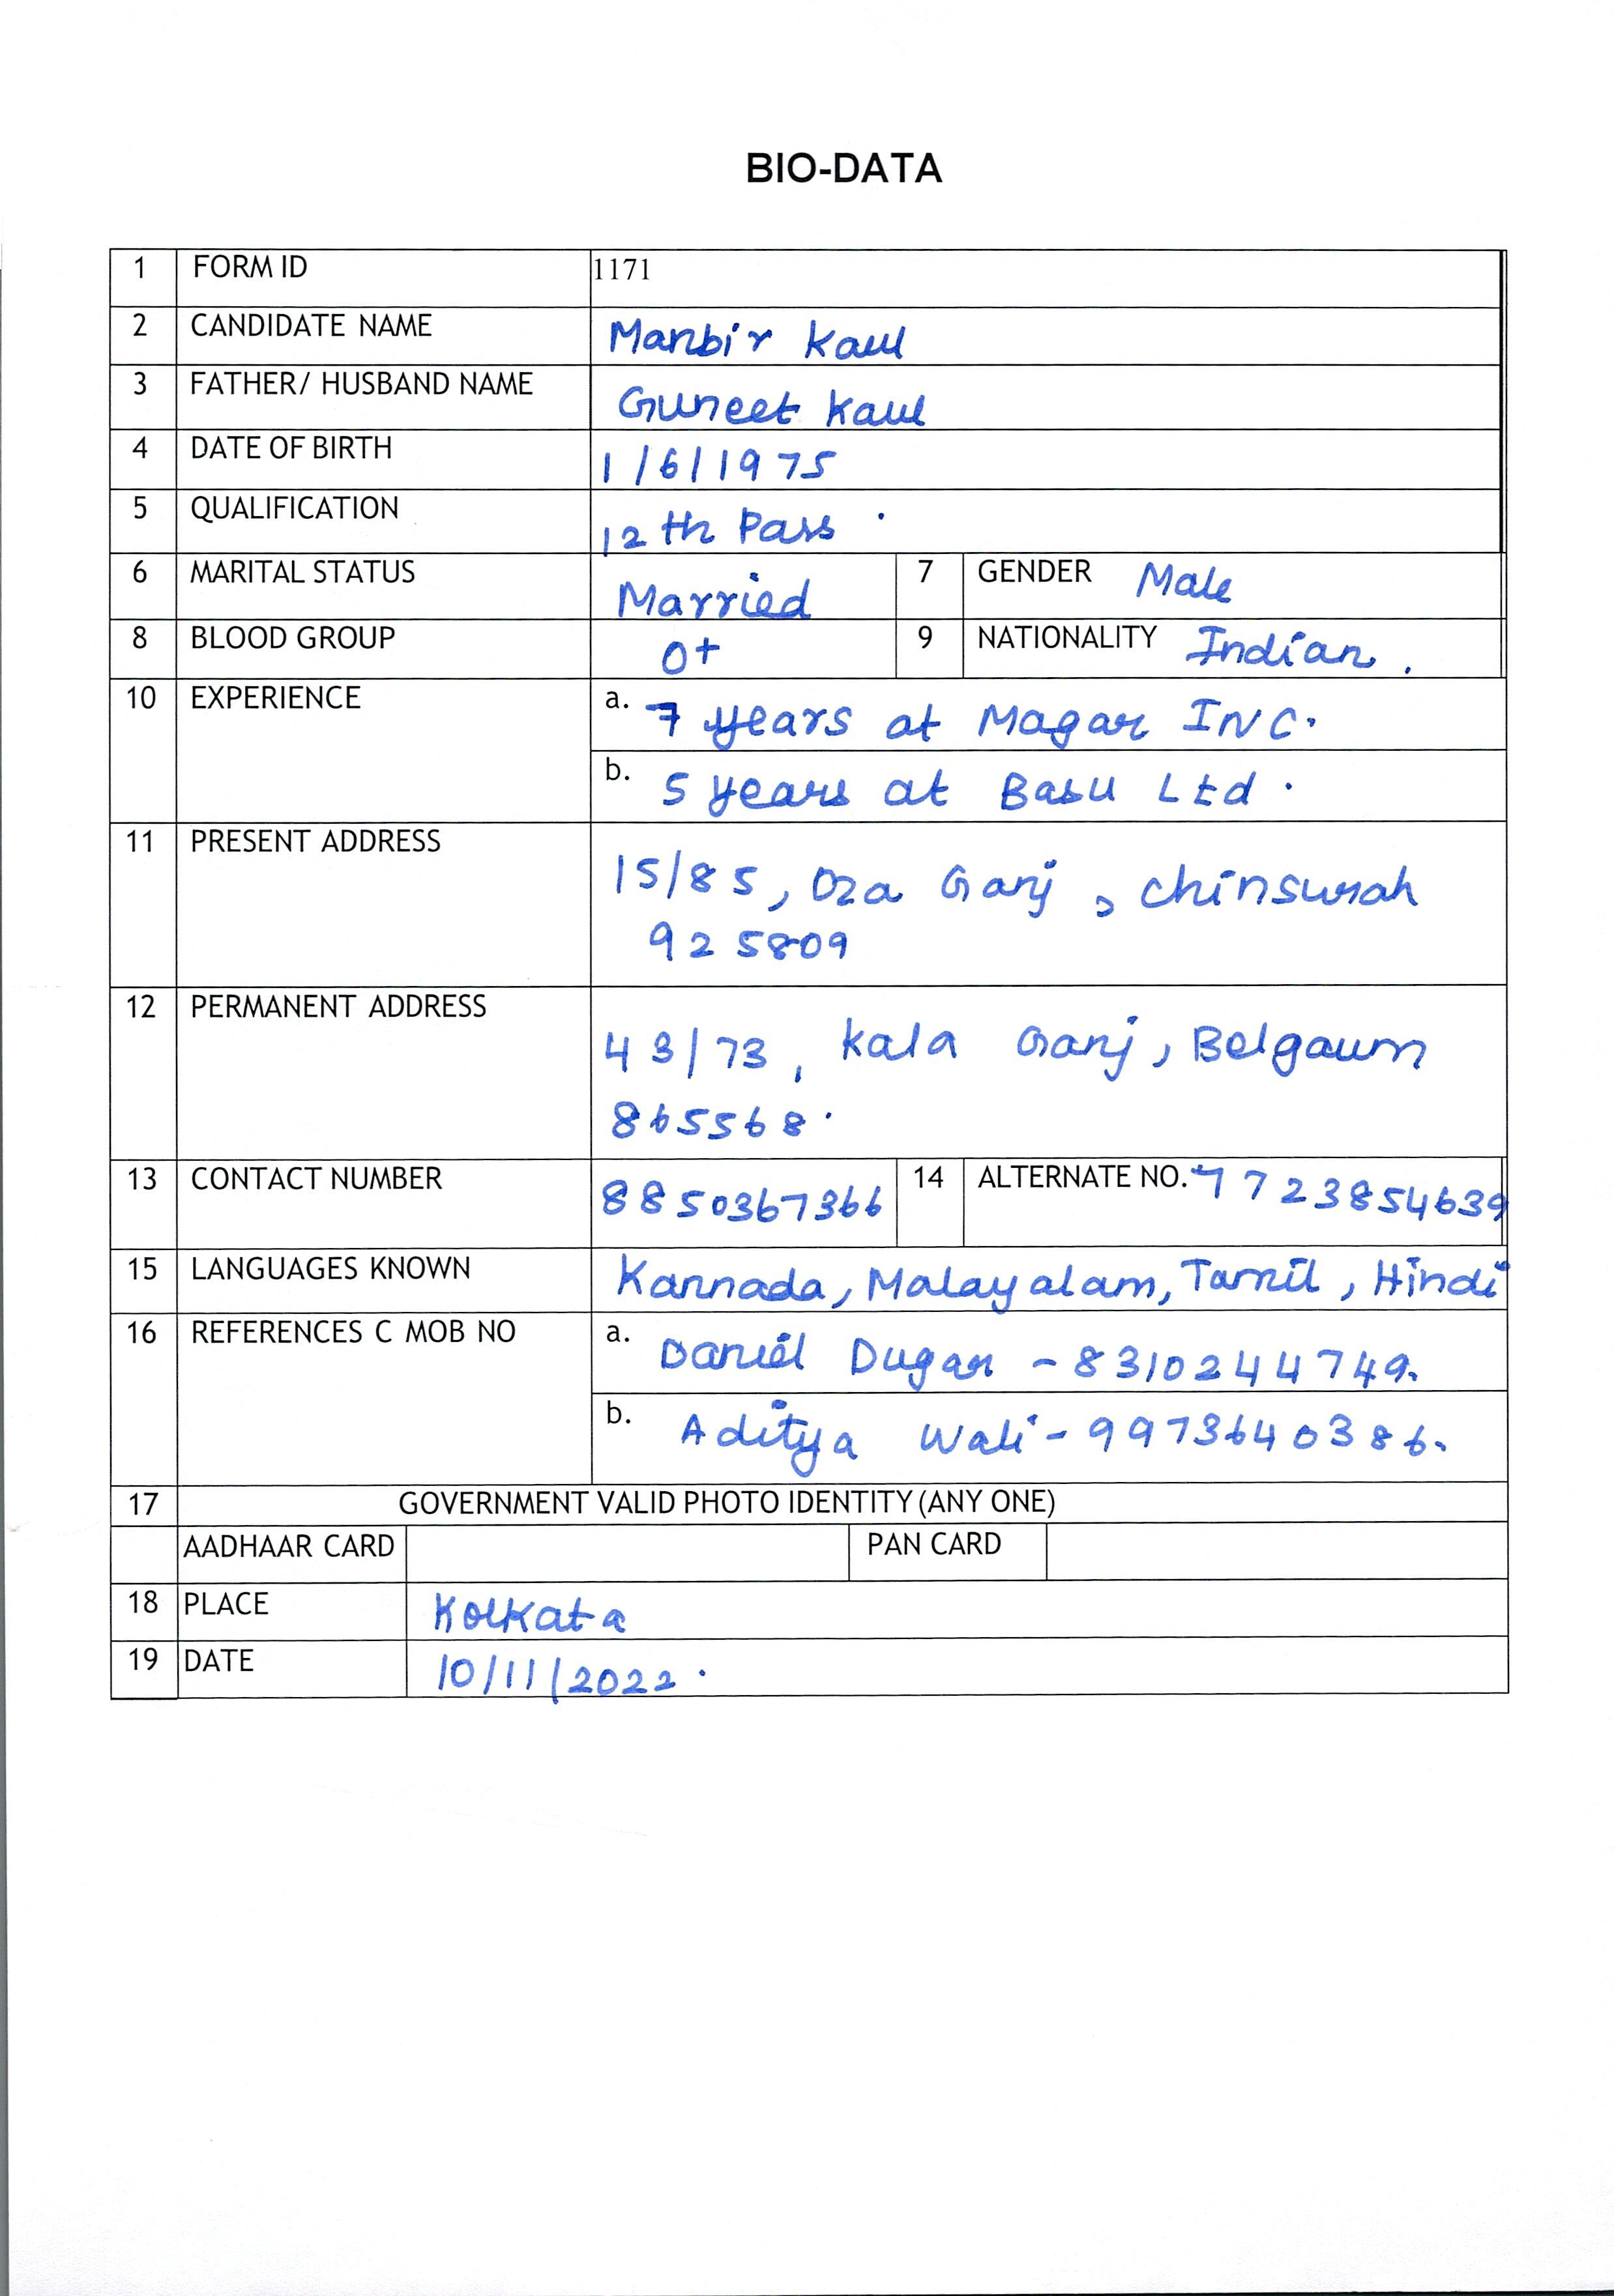 BIO-DATA
1 FORM ID 1171
2 CANDIDATE NAME Manbir Kaul
3 FATHER/ HUSBAND NAME Guneet Kaul
4 DATE OF BIRTH 1/6/1975
5 QUALIFICATION 12th Pass
6 MARITAL STATUS Married 7 GENDER Male
8 BLOOD GROUP O+ 9 NATIONALITY Indian.
10 EXPERIENCE a. 7 years at Magar INC.
b. 5 years at Basu Ltd.
11 PRESENT ADDRESS 15/85, Oza Ganj, Chinsurah
925809
12 PERMANENT ADDRESS 43/73, Kala Ganj, Belgaum
865568.
13 CONTACT NUMBER 8850367366 14 ALTERNATE NO. 7723854639
15 LANGUAGES KNOWN Kannada, Malayalam, Tamil, Hindi
16 REFERENCES C MOB NO a. Daniel Dugar - 8310244749.
b. Aditya Wali - 9973640386.
17 GOVERNMENT VALID PHOTO IDENTITY (ANY ONE)
AADHAAR CARD PAN CARD
18 PLACE Kolkata
19 DATE 10/11/2022.